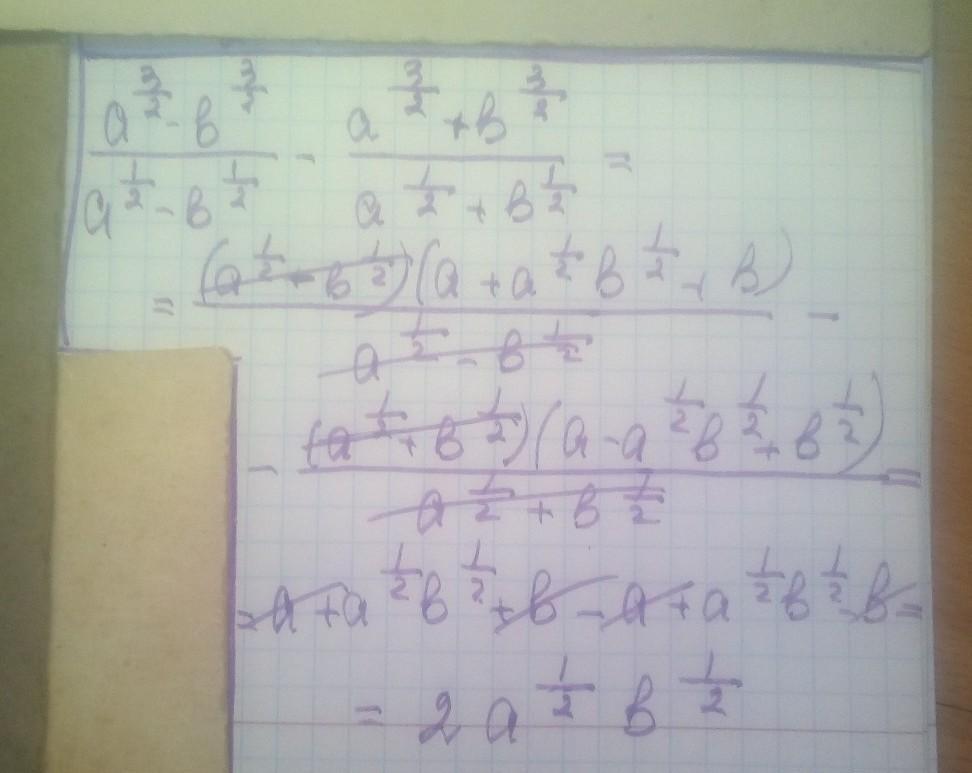 a^(3/2) - в^(3/2) / a^(1/2) - в^(1/2) - a^(3/2) + в^(3/2) / a^(1/2) + в^(1/2) =
= (a^(1/2) - в^(1/2))(a + a^(1/2) в^(1/2) + в) / a^(1/2) - в^(1/2) -
- (a^(1/2) + в^(1/2))(a - a^(1/2) в^(1/2) + в^(1/2)) / a^(1/2) + в^(1/2) =
= a + a^(1/2) в^(1/2) + в - a + a^(1/2) в^(1/2) - в =
= 2 a^(1/2) в^(1/2)